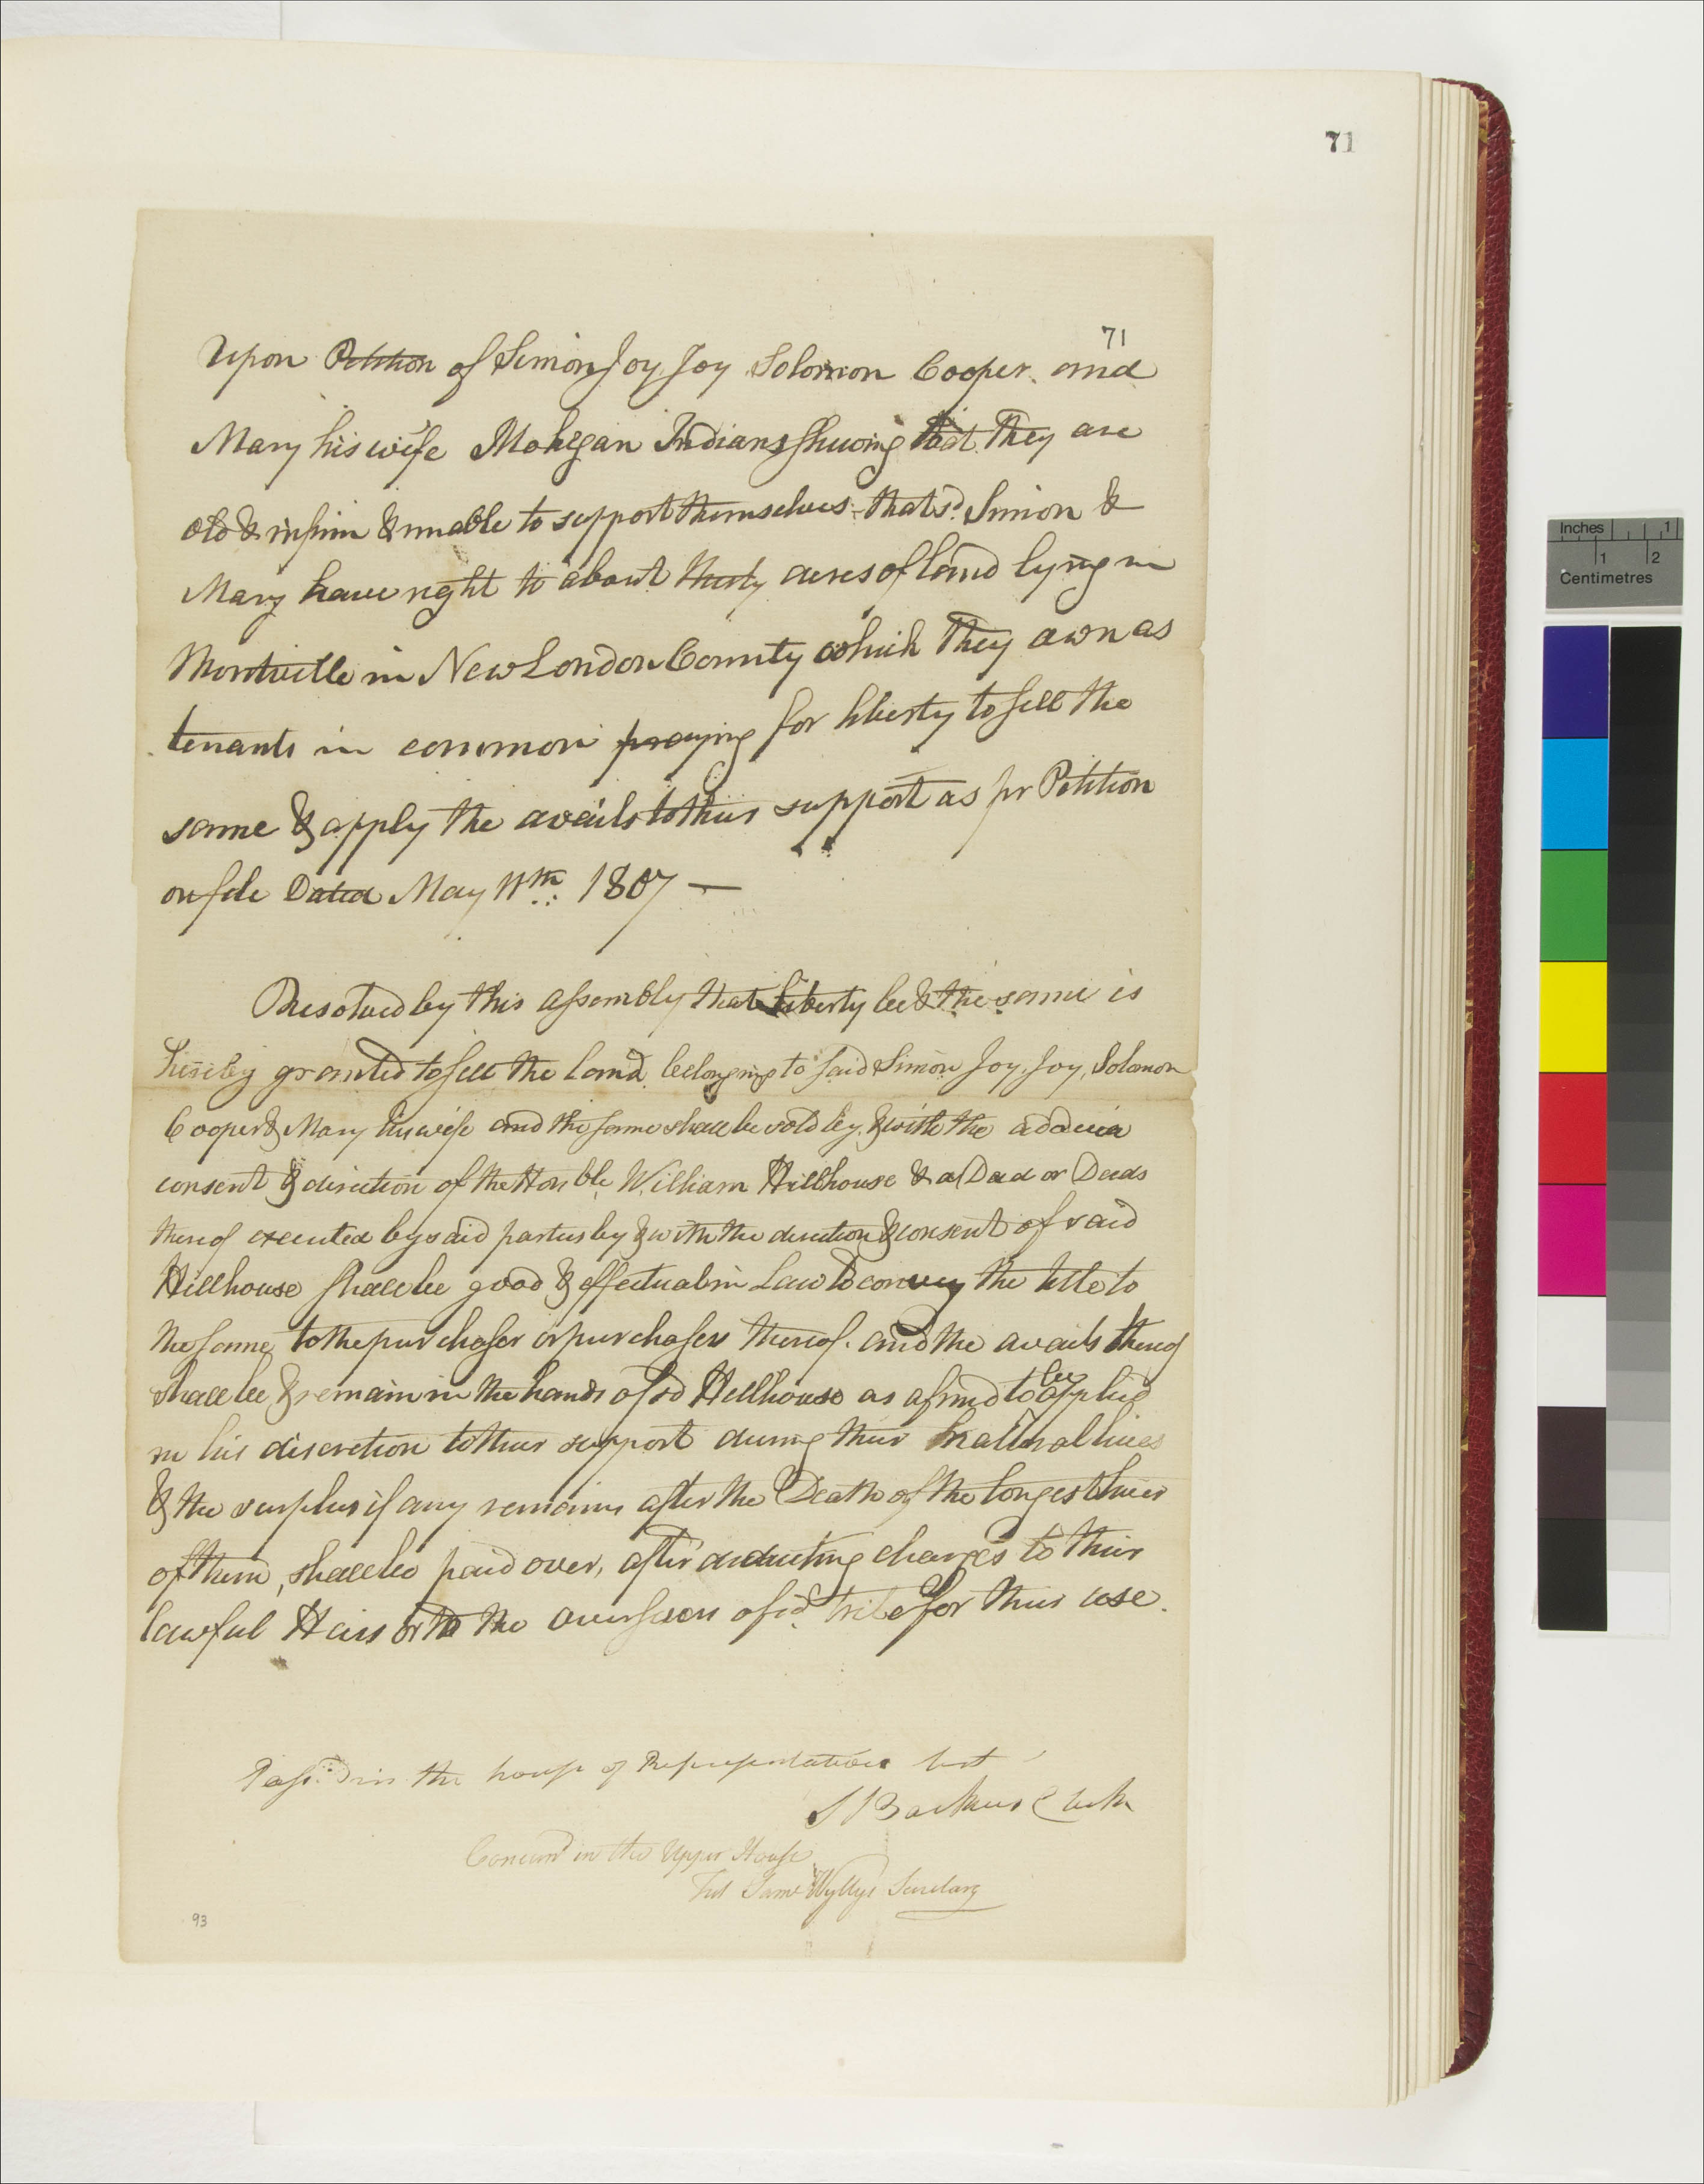 71
71
Upon Petition of Simon Joy Joy Solomon Cooper and
Mary his wife Mohegan Indians shewing that They are
old & infirm & unable to support themselves - that sd. Simon &
Mary have right to about thirty acres of land lying in
Montville in New London County which They own as
tenants in common praying for liberty to sell the
same & apply the avails to their support as pr Petition
on file Dated May 11th 1807 —
Resolved by this assembly that Liberty be & the same is
hereby granted to sell the land belonging to said Simon Joy Joy, Solomon
Cooper & Mary his wife and the same shall be sold by & with the advice
consent & direction of the Honble William Hillhouse & a Deed or Deeds
thereof executed by said parties by & with the direction & consent of said
Hillhouse shall be good & effectual in Law to convey the title to
the same to the purchaser or purchasers thereof. and the avails thereof
shall be & remain in the hands of sd Hillhouse as a fund to be applied
in his discretion to their support during their natural lives
& the surplus if any remains after the Death of the longest liver
of them, shall be paid over, after deducting charges to their
lawful Heirs or to the overseers of sd. tribe for their use.
Passd in the house of Representatives test
S Backus Clerk
Concurrd in the Upper House
Test Saml Wyllys Secretary
93
Inches
1
1
2
Centimetres